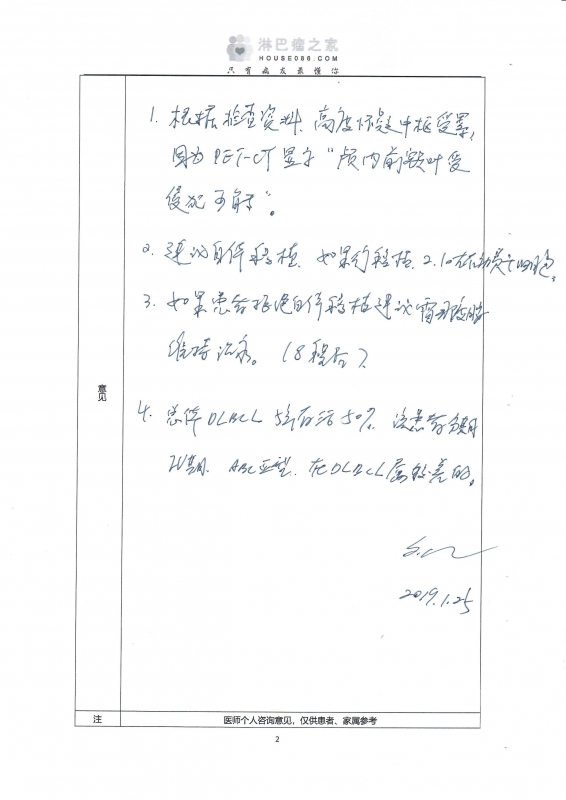 淋巴瘤之家
HOUSE086.COM
只有病友最懂你
意见
1. 根据检查资料、高度怀疑中枢受累,
因为PET-CT显示“颅内前额叶受
侵犯可能”。
2. 建议自体移植、如果移植、2.10左右动员
3. 如果患者拒绝自体移植建议雷那度胺
维持治疗。(8程后)、
4. 总体DLBCL 5年存活50%、该患者分期
IV期、ABC亚型、在DLBCL属较差的。
2019.1.25
注
医师个人咨询意见,仅供患者、家属参考
2